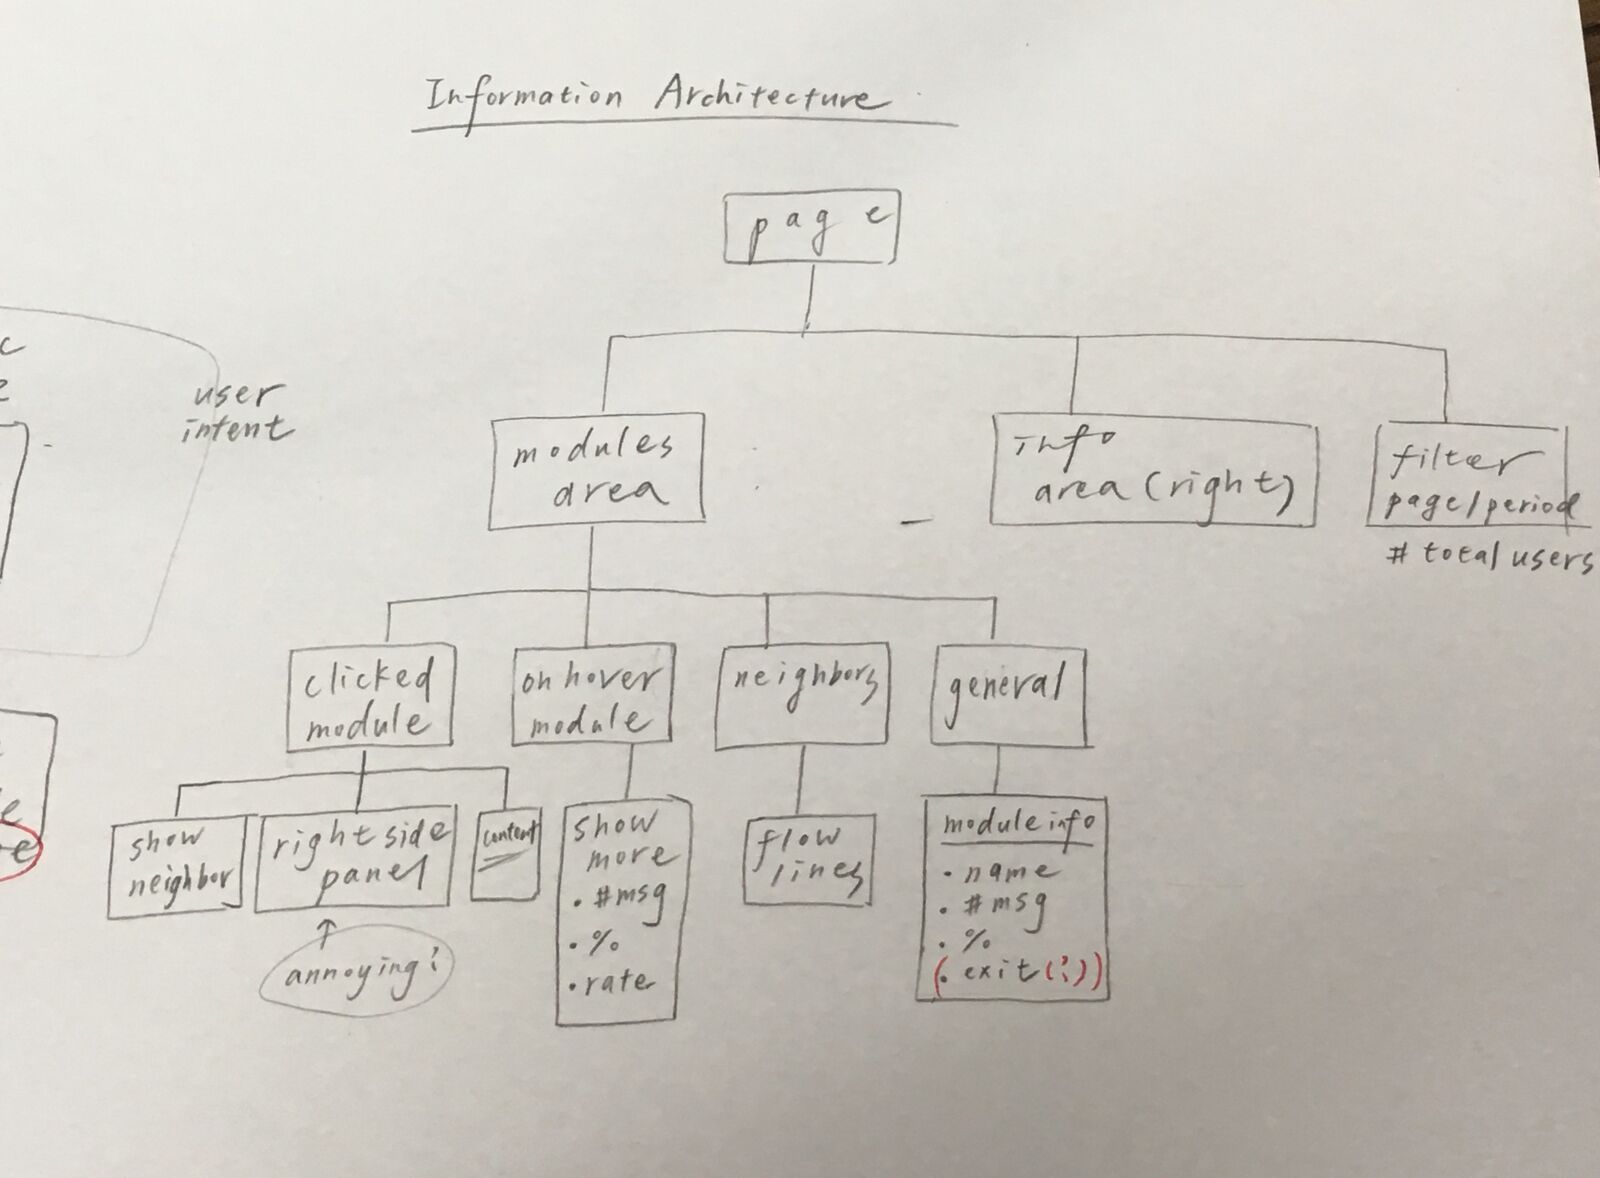 Information Architecture
page
user
intent
modules
area
info
area (right)
filter
page/period
# total users
clicked
module
onhover
module
neighbors
general
show
neighbor
right side
panel
content
show
more
• #msg
• %
• rate
flow
lines
module info
• name
• #msg
• %
(• exit(?))
↑
annoying?